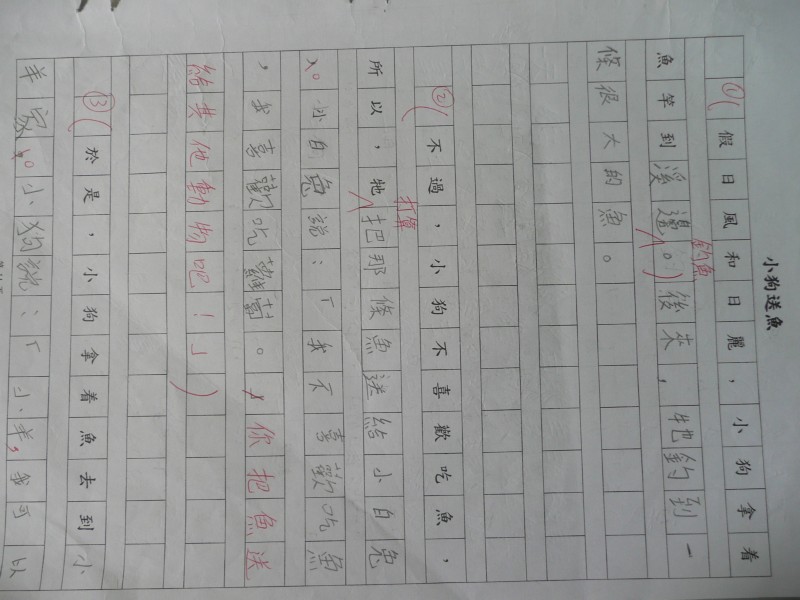 小狗送魚
①(假日風和日麗，小狗拿着
魚竿到溪邊釣魚。)後來，牠釣到一
條很大的魚。
②(不過，小狗不喜歡吃魚，
所以，牠打算把那條魚送給小白兔
。小白兔說：「我不喜歡吃魚
，我喜歡吃蘿蔔。你把魚送
給其他動物吧！」)
③(於是，小狗拿着魚去到小
羊家。小狗說：「小羊，我可以